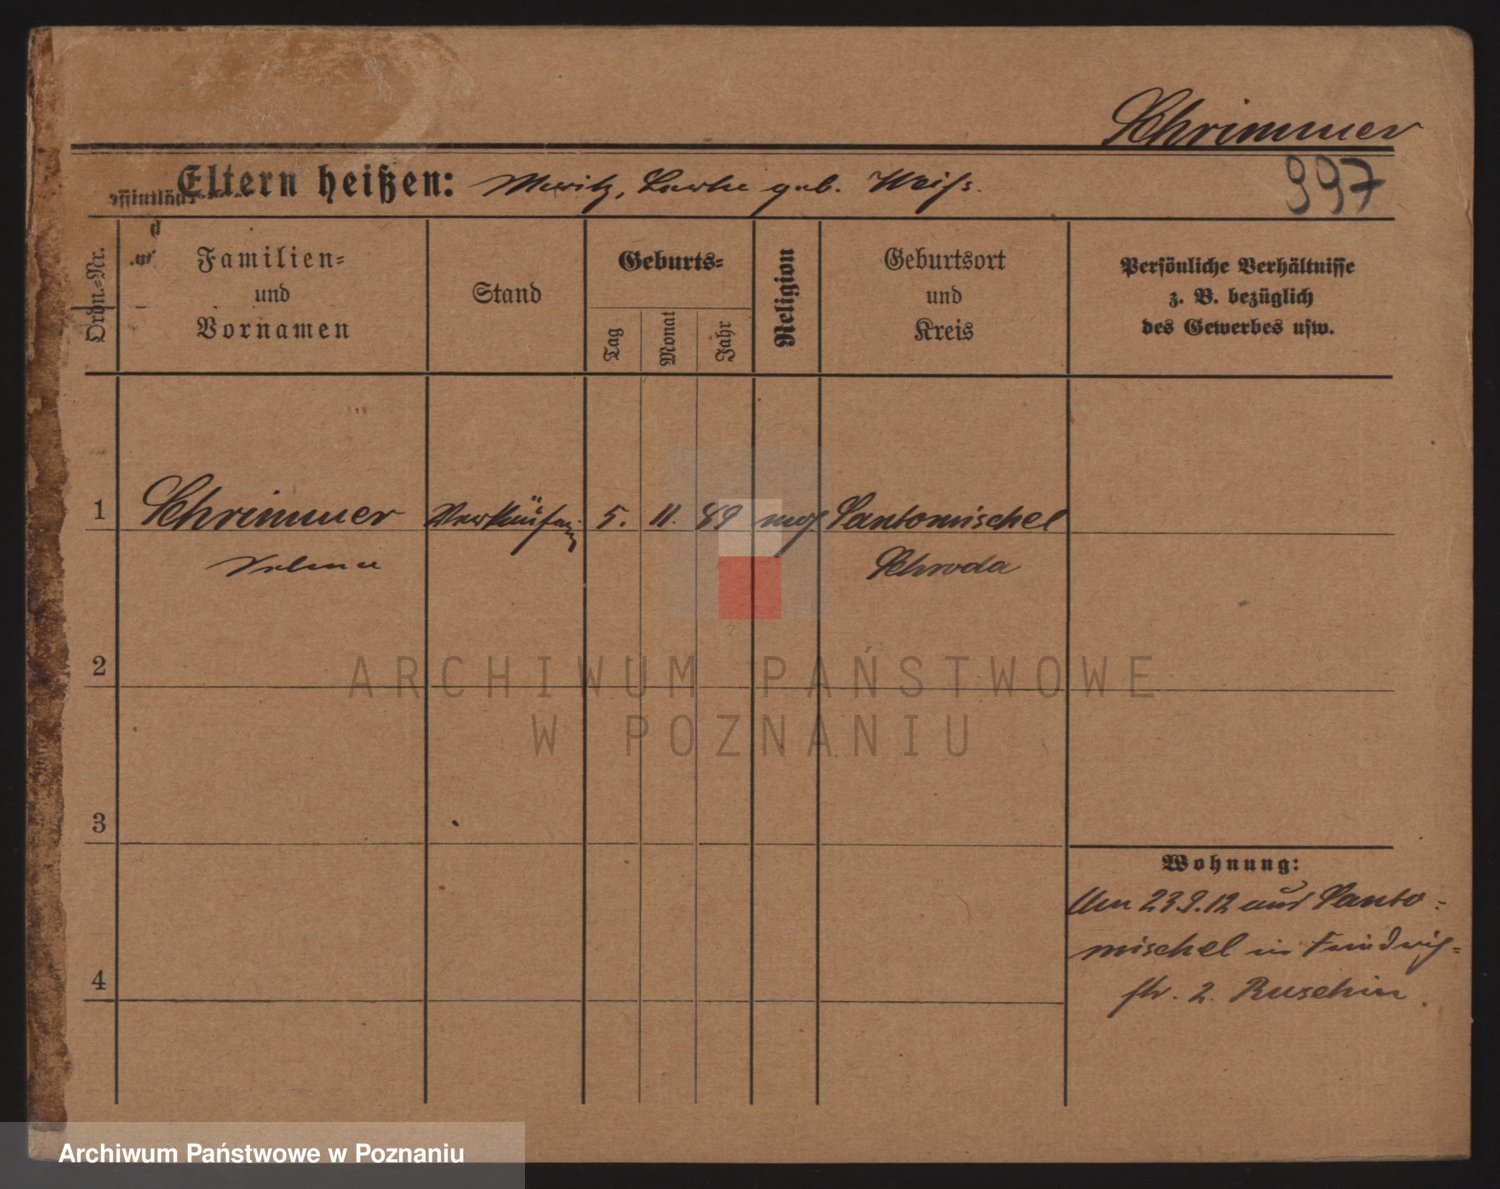 Schrimmer
Eltern heißen: Moritz, geb. Weiß.
997
Ordn.-Nr.
Familien-
und
Vornamen
Stand
Geburts-
Tag
Monat
Jahr
Religion
Geburtsort
und
Kreis
Persönliche Verhältnisse
z. B. bezüglich
des Gewerbes usw.
1 Schrimmer Verkäuferin 5. 11. 89 mos Santomischel
Schroda
2
3
4
Wohnung:
Am 23.9.12 aus Santo-
mischel in
str. 2.
ARCHIWUM PAŃSTWOWE
W POZNANIU
Archiwum Państwowe w Poznaniu